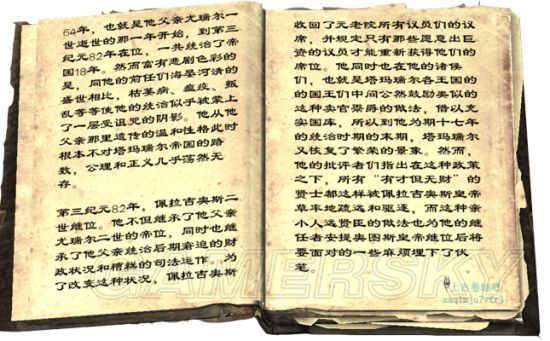 64年，也就是他父亲尤瑞尔一
世逝世的那一年开始，到第三
纪元82年在位，一共统治了帝
国18年。然而富有悲剧色彩的
是，同他的前任们海晏河清的
盛世相比，枯萎病、瘟疫、叛
乱等等使他的统治似乎被蒙上
了一层受诅咒的阴影。他从他
父亲那里遗传的温和性格此时
根本不对塔玛瑞尔帝国的路
数，公理和正义几乎荡然无
存。
第三纪元82年，佩拉吉奥斯二
世继位。他不但继承了他父亲
尤瑞尔二世的帝位，同时也继
承了他父亲统治后期窘迫的财
政状况和糟糕的司法运作。为
了改变这种状况，佩拉吉奥斯
收回了元老院所有议员们的议
席，并规定只有那些愿意出巨
资的议员才能重新获得他们的
席位。他同时也在他的诸侯
们，也就是塔玛瑞尔各王国的
的国王们中间公然鼓励类似的
这种卖官鬻爵的做法，借以充
实国库，所以到他为期十七年
的统治时期的末期，塔玛瑞尔
又恢复了繁荣的景象。然而，
他的批评者们指出在这种政策
之下，所有“有才但无财”的
贤士都这样被佩拉吉奥斯皇帝
草率地疏远和驱逐，而这种亲
小人远贤臣的做法也为他的继
任者安提奥图斯皇帝继位后将
要面对的一些麻烦埋下了伏
笔。
GAMERSKY
上古卷轴吧